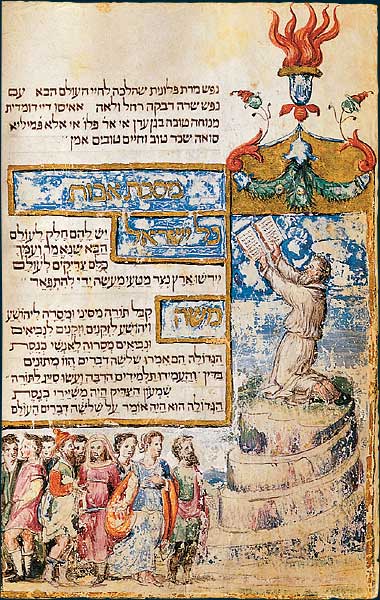 נפש מרת פלונית שהלכה, לחיי העולם הבא עם
נפש שרה רבקה רחל ולאה
מנוחה טובה בגן עדן אי אר פלו אי אלא פמיליא
סואה טוב וחיים טובים אמן
מסכת אבות
כל ישראל
יש להם חלק לעולם
הבא שנאמר ועמך
כלם צדיקים לעולם
יירשו ארץ נצר מטעי מעשה ידי להתפאר
משה
קבל תורה מסיני ומסרה ליהושע
ויהושע לזקנים וזקנים לנביאים
ונביאים מסרוה לאנשי כנסת
הגדולה הם אמרו שלשה דברים הוו מתונים
בדין והעמידו תלמידים הרבה ועשו סייג לתורה
שמעון הצדיק היה משיירי כנסת
הגדולה הוא היה אומר על שלשה דברים העולם